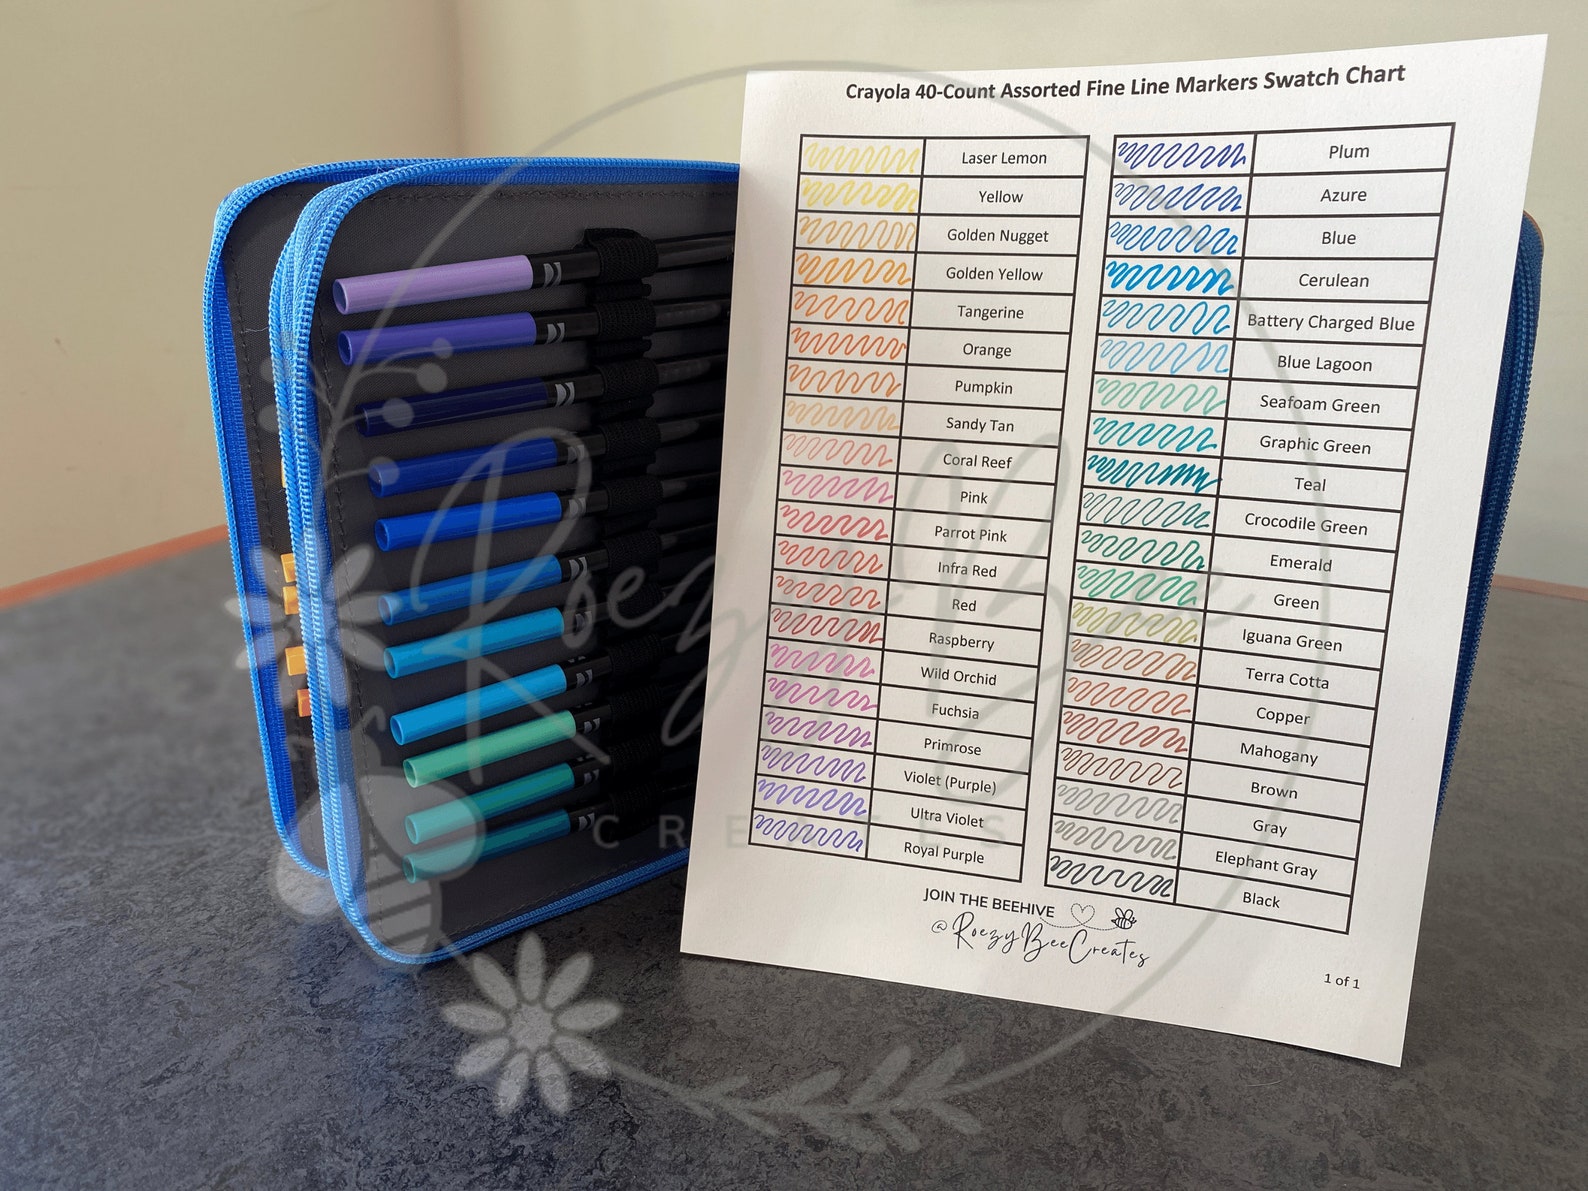 Crayola 40-Count Assorted Fine Line Markers Swatch Chart
Laser Lemon
Yellow
Golden Nugget
Golden Yellow
Tangerine
Orange
Pumpkin
Sandy Tan
Coral Reef
Pink
Parrot Pink
Infra Red
Red
Raspberry
Wild Orchid
Fuchsia
Primrose
Violet (Purple)
Ultra Violet
Royal Purple
Plum
Azure
Blue
Cerulean
Battery Charged Blue
Blue Lagoon
Seafoam Green
Graphic Green
Teal
Crocodile Green
Emerald
Green
Iguana Green
Terra Cotta
Copper
Mahogany
Brown
Gray
Elephant Gray
Black
JOIN THE BEEHIVE
@RoezyBeeCreates
1 of 1
RoezyBee
CREATES